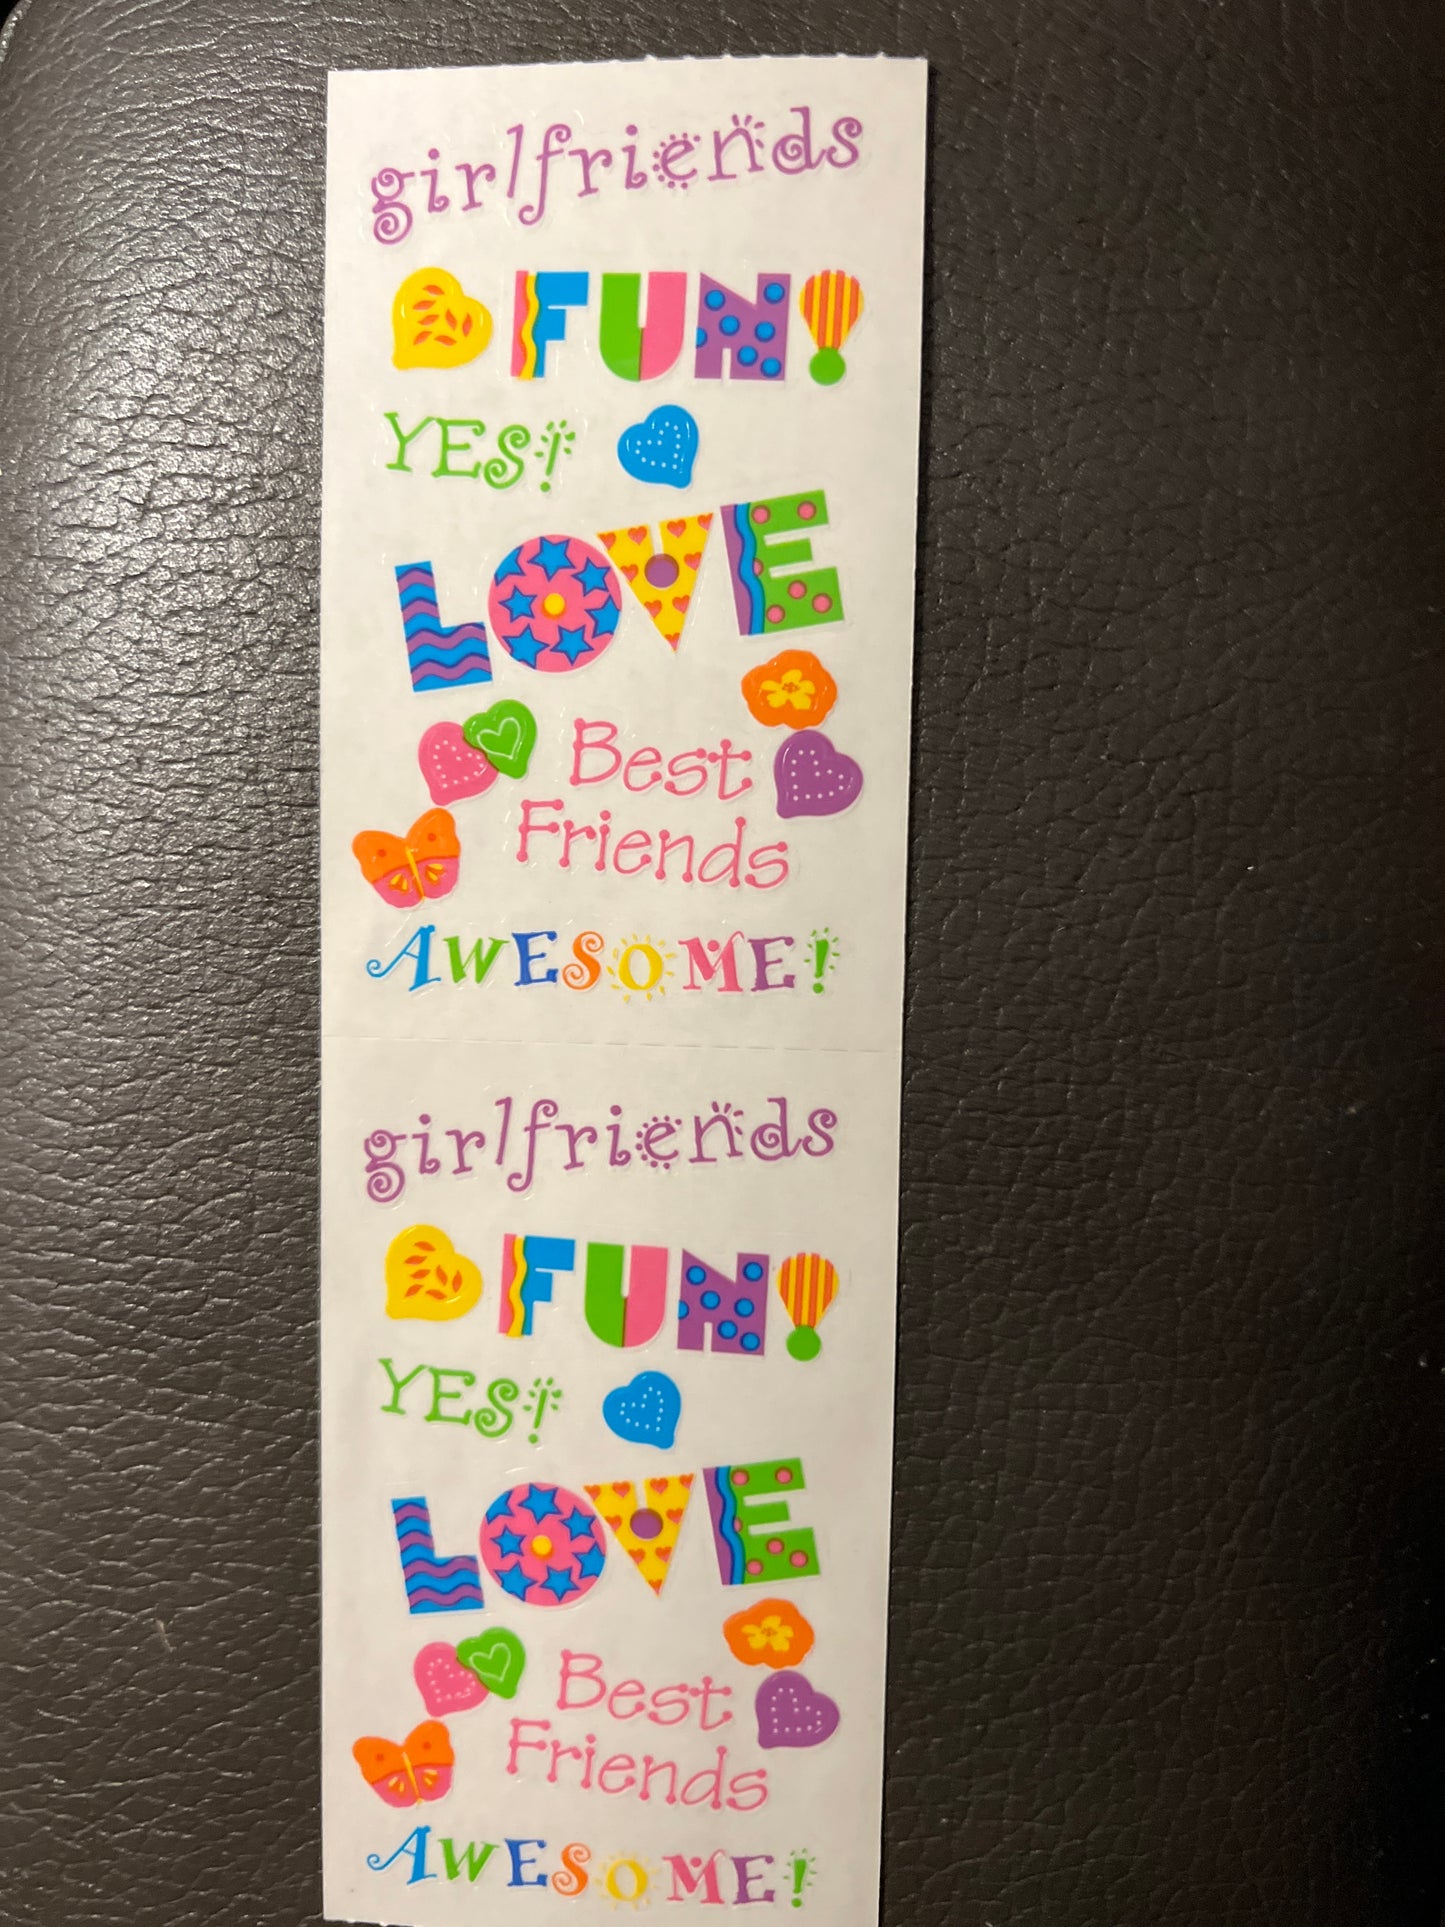 girlfriends
FUN!
YES!
LOVE
Best
Friends
AWESOME!
girlfriends
FUN!
YES!
LOVE
Best
Friends
AWESOME!